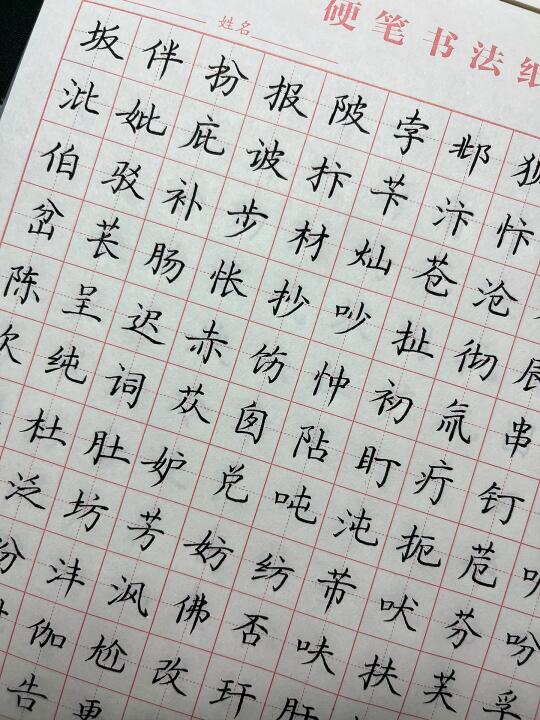 硬笔书法纸
姓名
坂伴扮报陂孛邶狈
沘妣庇诐抃苄汴忭
伯驳补步材灿苍沧
岔苌肠怅抄吵扯彻辰
陈呈迟赤饬忡初氚串
次纯词苁囱阽盯疔钉
杜肚妒兑吨沌扼苊
泛坊芳妨纺芾吠芬吩
纷沣沨佛否呋扶芙孚
伽尬改玕肝
告更